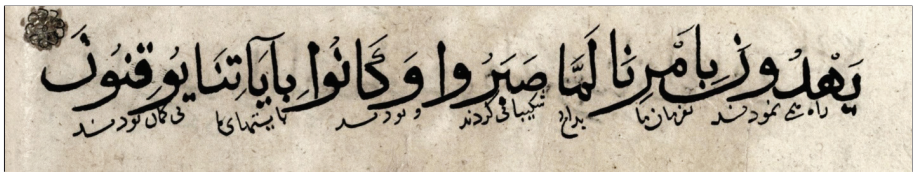 يَهْدُونَ بِاَمْرِنَا لَمَّا صَبَرُوا وَكَانُوا بِآيَاتِنَا يُوقِنُونَ
راه می نمودند بفرمان ما شکیبائی کردند و بودند بی گمان بودند